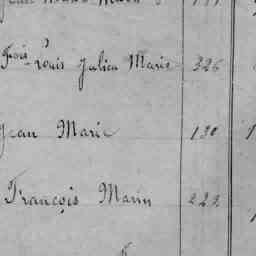 Fois Louis Julien Marie 326
Jean Marie 130
François Marin 222